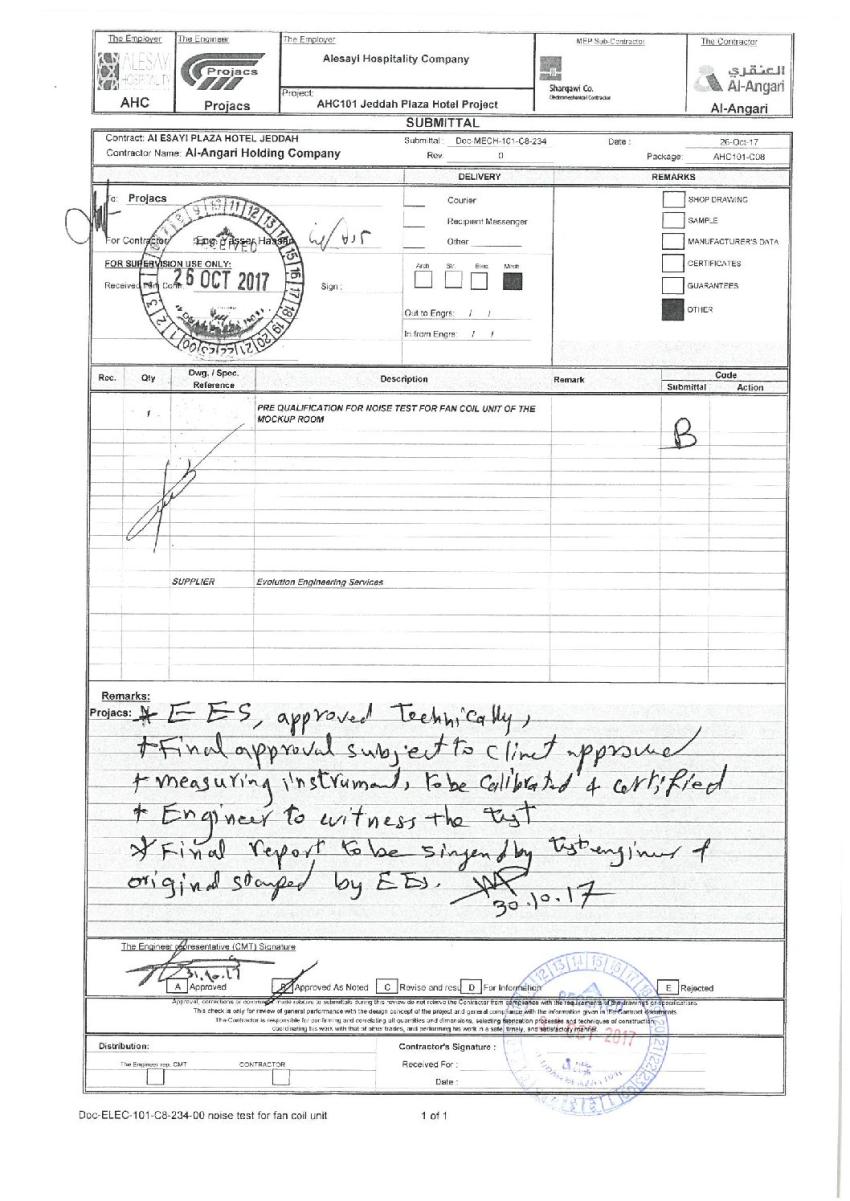 The Employer
ALESAYI
HOSPITALITY
AHC
The Engineer
Projacs
Projacs
The Employer
Alesayi Hospitality Company
Project:
AHC101 Jeddah Plaza Hotel Project
MEP Sub-Contractor
Sharqawi Co.
Electromechanical Contractor
The Contractor
العنقري
Al-Angari
Al-Angari
SUBMITTAL
Contract: Al ESAYI PLAZA HOTEL JEDDAH
Contractor Name: Al-Angari Holding Company
Submittal : Doc-MECH-101-C8-234
Rev. 0
Date : 26-Oct-17
Package: AHC101-C08
DELIVERY
REMARKS
To: Projacs
For Contractor Eng. Yasser Hassan
RECEIVED
FOR SUPERVISION USE ONLY:
26 OCT 2017
Sign :
Courier
Recipient Messenger
Other
Arch Str. Elec Mech
Out to Engrs: / /
In from Engrs: / /
SHOP DRAWING
SAMPLE
MANUFACTURER'S DATA
CERTIFICATES
GUARANTEES
OTHER
Rec. Qty Dwg. / Spec. Reference Description Remark Code
Submittal Action
1 PRE QUALIFICATION FOR NOISE TEST FOR FAN COIL UNIT OF THE
MOCKUP ROOM
B
SUPPLIER Evolution Engineering Services
Remarks:
Projacs: * EES, approved Technically,
+ Final approval subject to clinet approve
+ measuring instrument, to be calibrated & certified
+ Engineer to witness the test
* Final report to be singend by test enginer &
original stamped by EES.
30.10.17
The Engineer representative (CMT) Signature
31.10.17
A Approved
B Approved As Noted
C Revise and resu
D For Information
E Rejected
Approval, corrections or comments made relative to submittals during this review do not relieve the Contractor from compliance with the requirements of the drawings or specifications
This check is only for review of general performance with the design concept of the project and general compliance with the information given in the Contract documents
The Contractor is responsible for confirming and correlating all quantities and dimensions, selecting fabrication processes and techniques of construction,
coordinating his work with that of other trades, and performing his work in a safe, timely, and satisfactory manner.
OCT 2017
Distribution:
The Engineer rep. CMT
CONTRACTOR
Contractor's Signature :
Received For :
Date :
Doc-ELEC-101-C8-234-00 noise test for fan coil unit
1 of 1